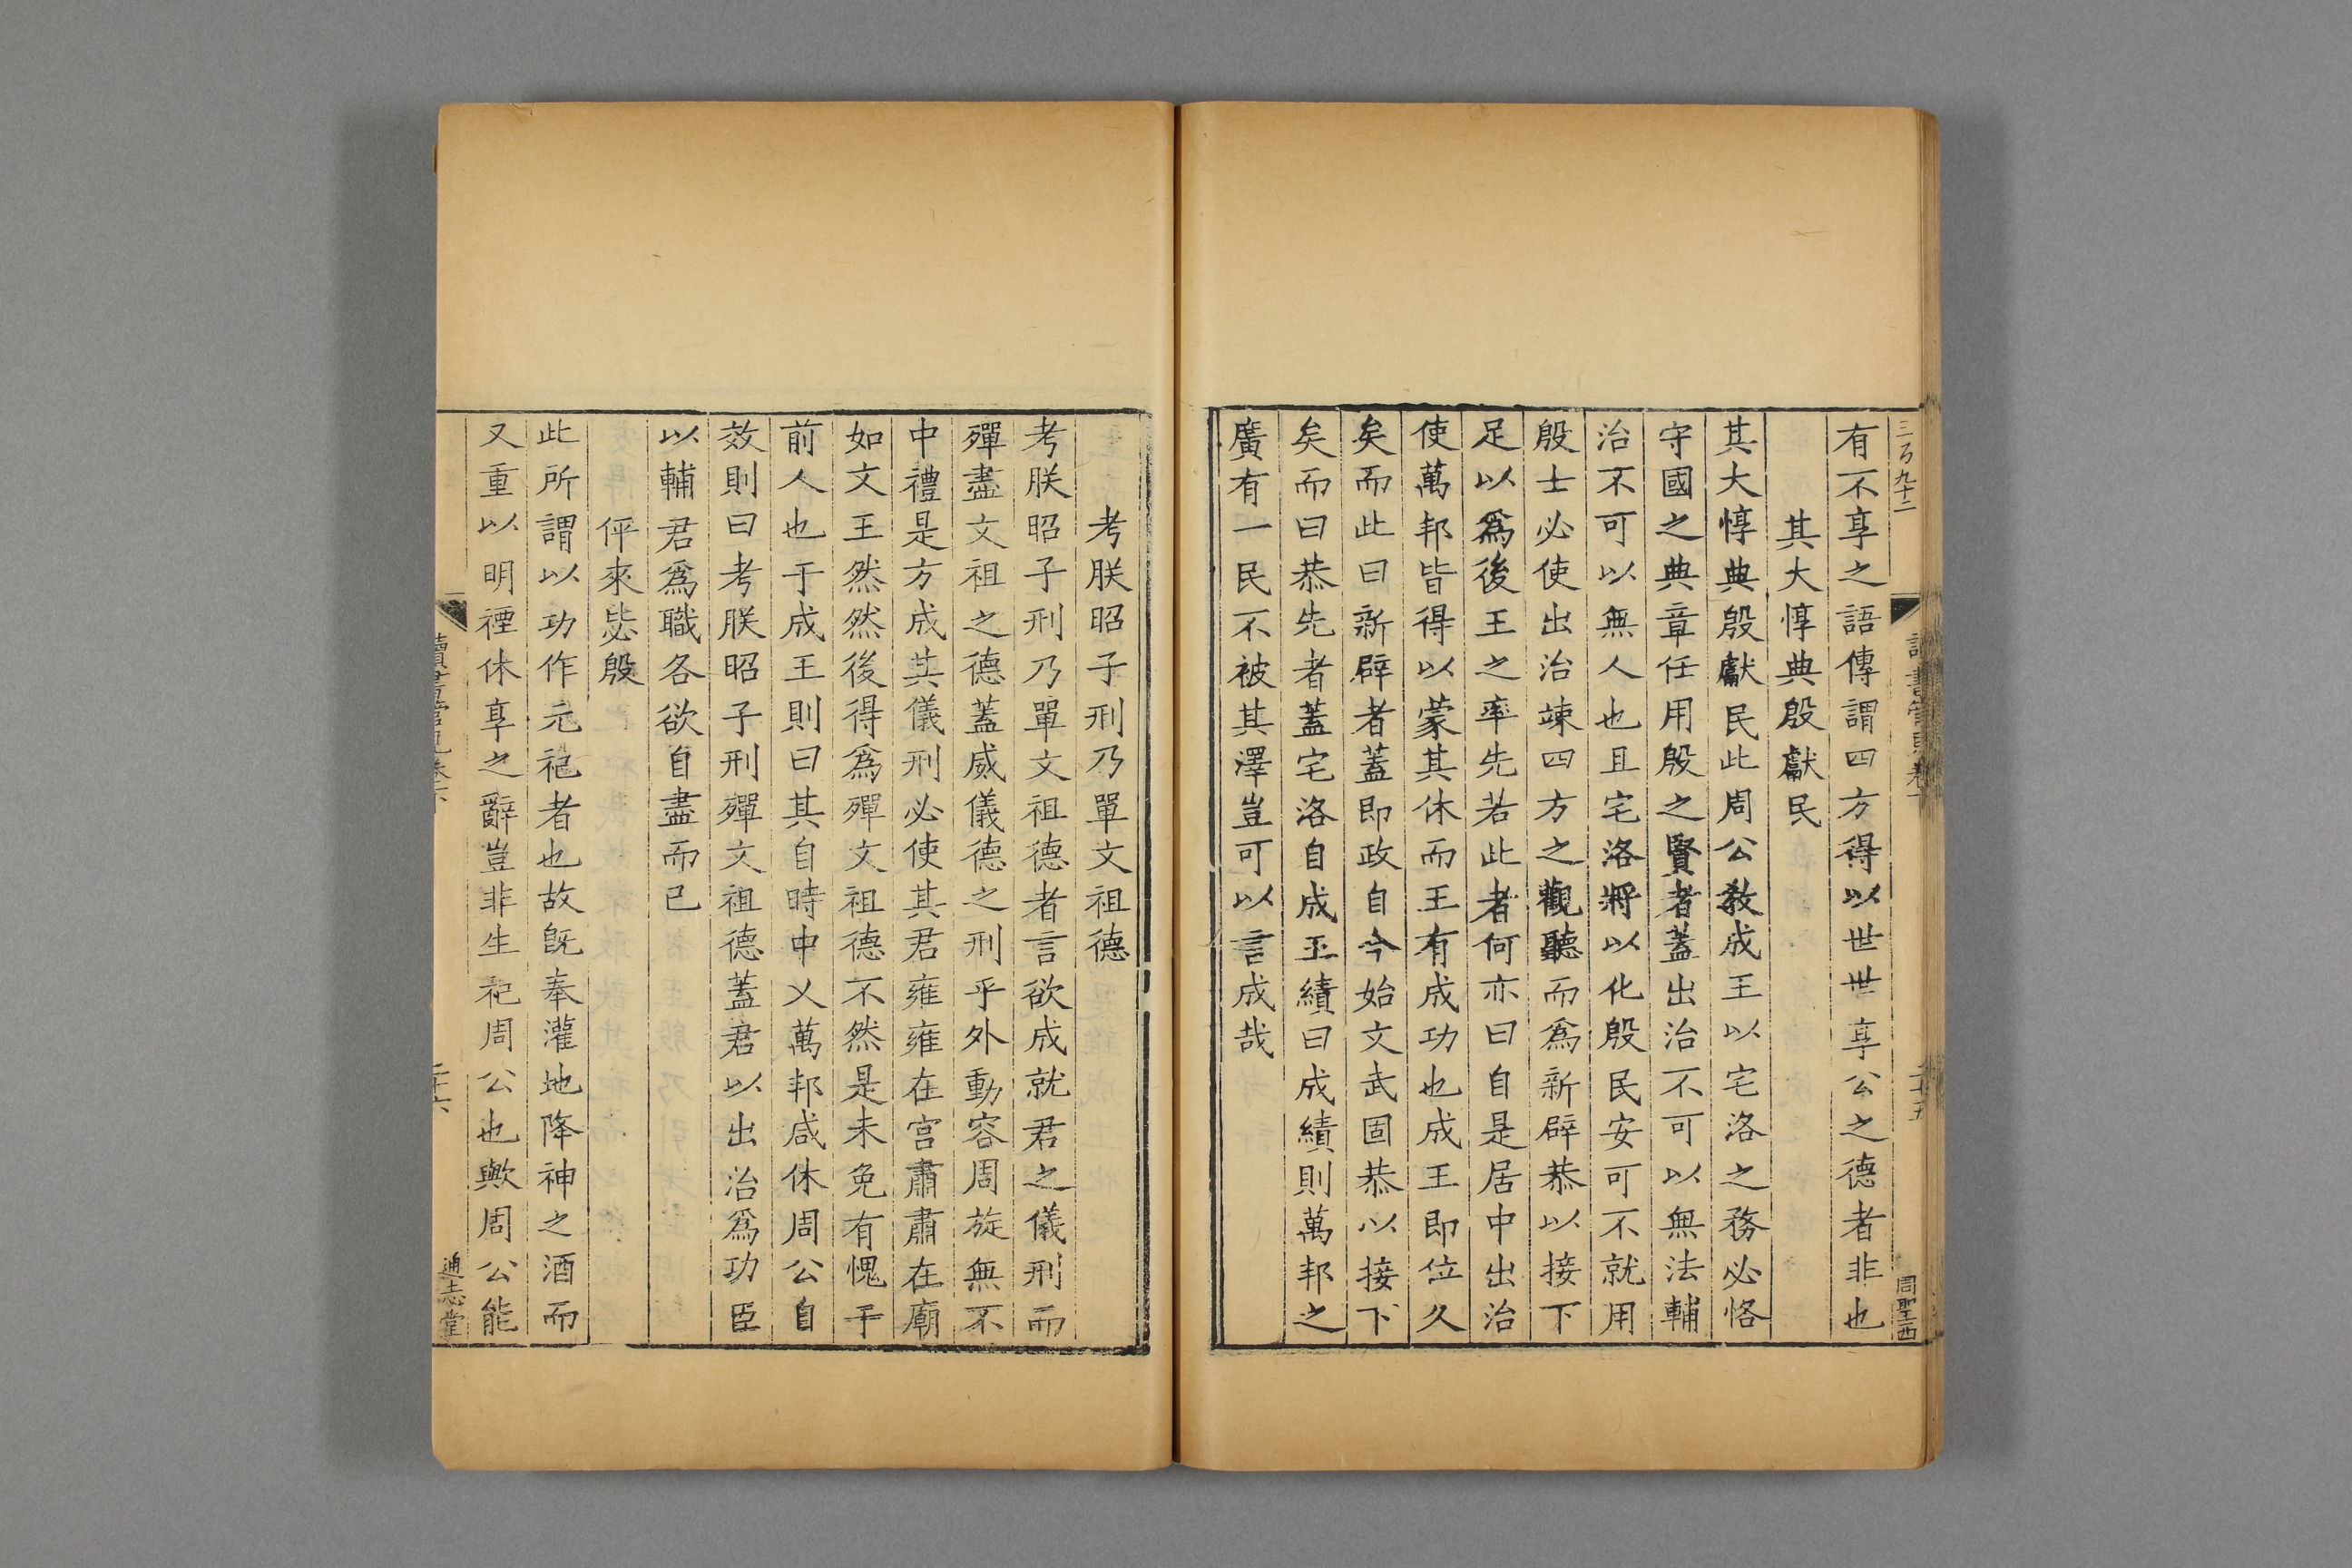 三百九十二
有不享之語傳謂四方得以世世享公之德者非也
其大惇典殷獻民
其大惇典殷獻民此周公教成王以宅洛之務必恪
守國之典章任用殷之賢者蓋出治不可以無法輔
治不可以無人也且宅洛將以化殷民安可不就用
殷士必使出治竦四方之觀聽而爲新辟恭以接下
足以爲後王之率先若此者何亦曰自是居中出治
使萬邦皆得以蒙其休而王有成功也成王即位久
矣而此曰新辟者蓋即政自今始文武固恭以接下
矣而曰恭先者蓋宅洛自成王績曰成績則萬邦之
廣有一民不被其澤豈可以言成哉
周聖西
考朕昭子刑乃單文祖德
考朕昭子刑乃單文祖德者言欲成就君之儀刑而
殫盡文祖之德蓋威儀德之刑乎外動容周旋無不
中禮是方成其儀刑必使其君雍雍在宮肅肅在廟
如文王然然後得爲殫文祖德不然是未免有愧乎
前人也于成王則曰其自時中乂萬邦咸休周公自
效則曰考朕昭子刑殫文祖德蓋君以出治爲功臣
以輔君爲職各欲自盡而已
伻來毖殷
此所謂以功作元祀者也故旣奉灌地降神之酒而
又重以明禋休享之辭豈非生祀周公也歟周公能
讀書管見卷下
二十六
通志堂